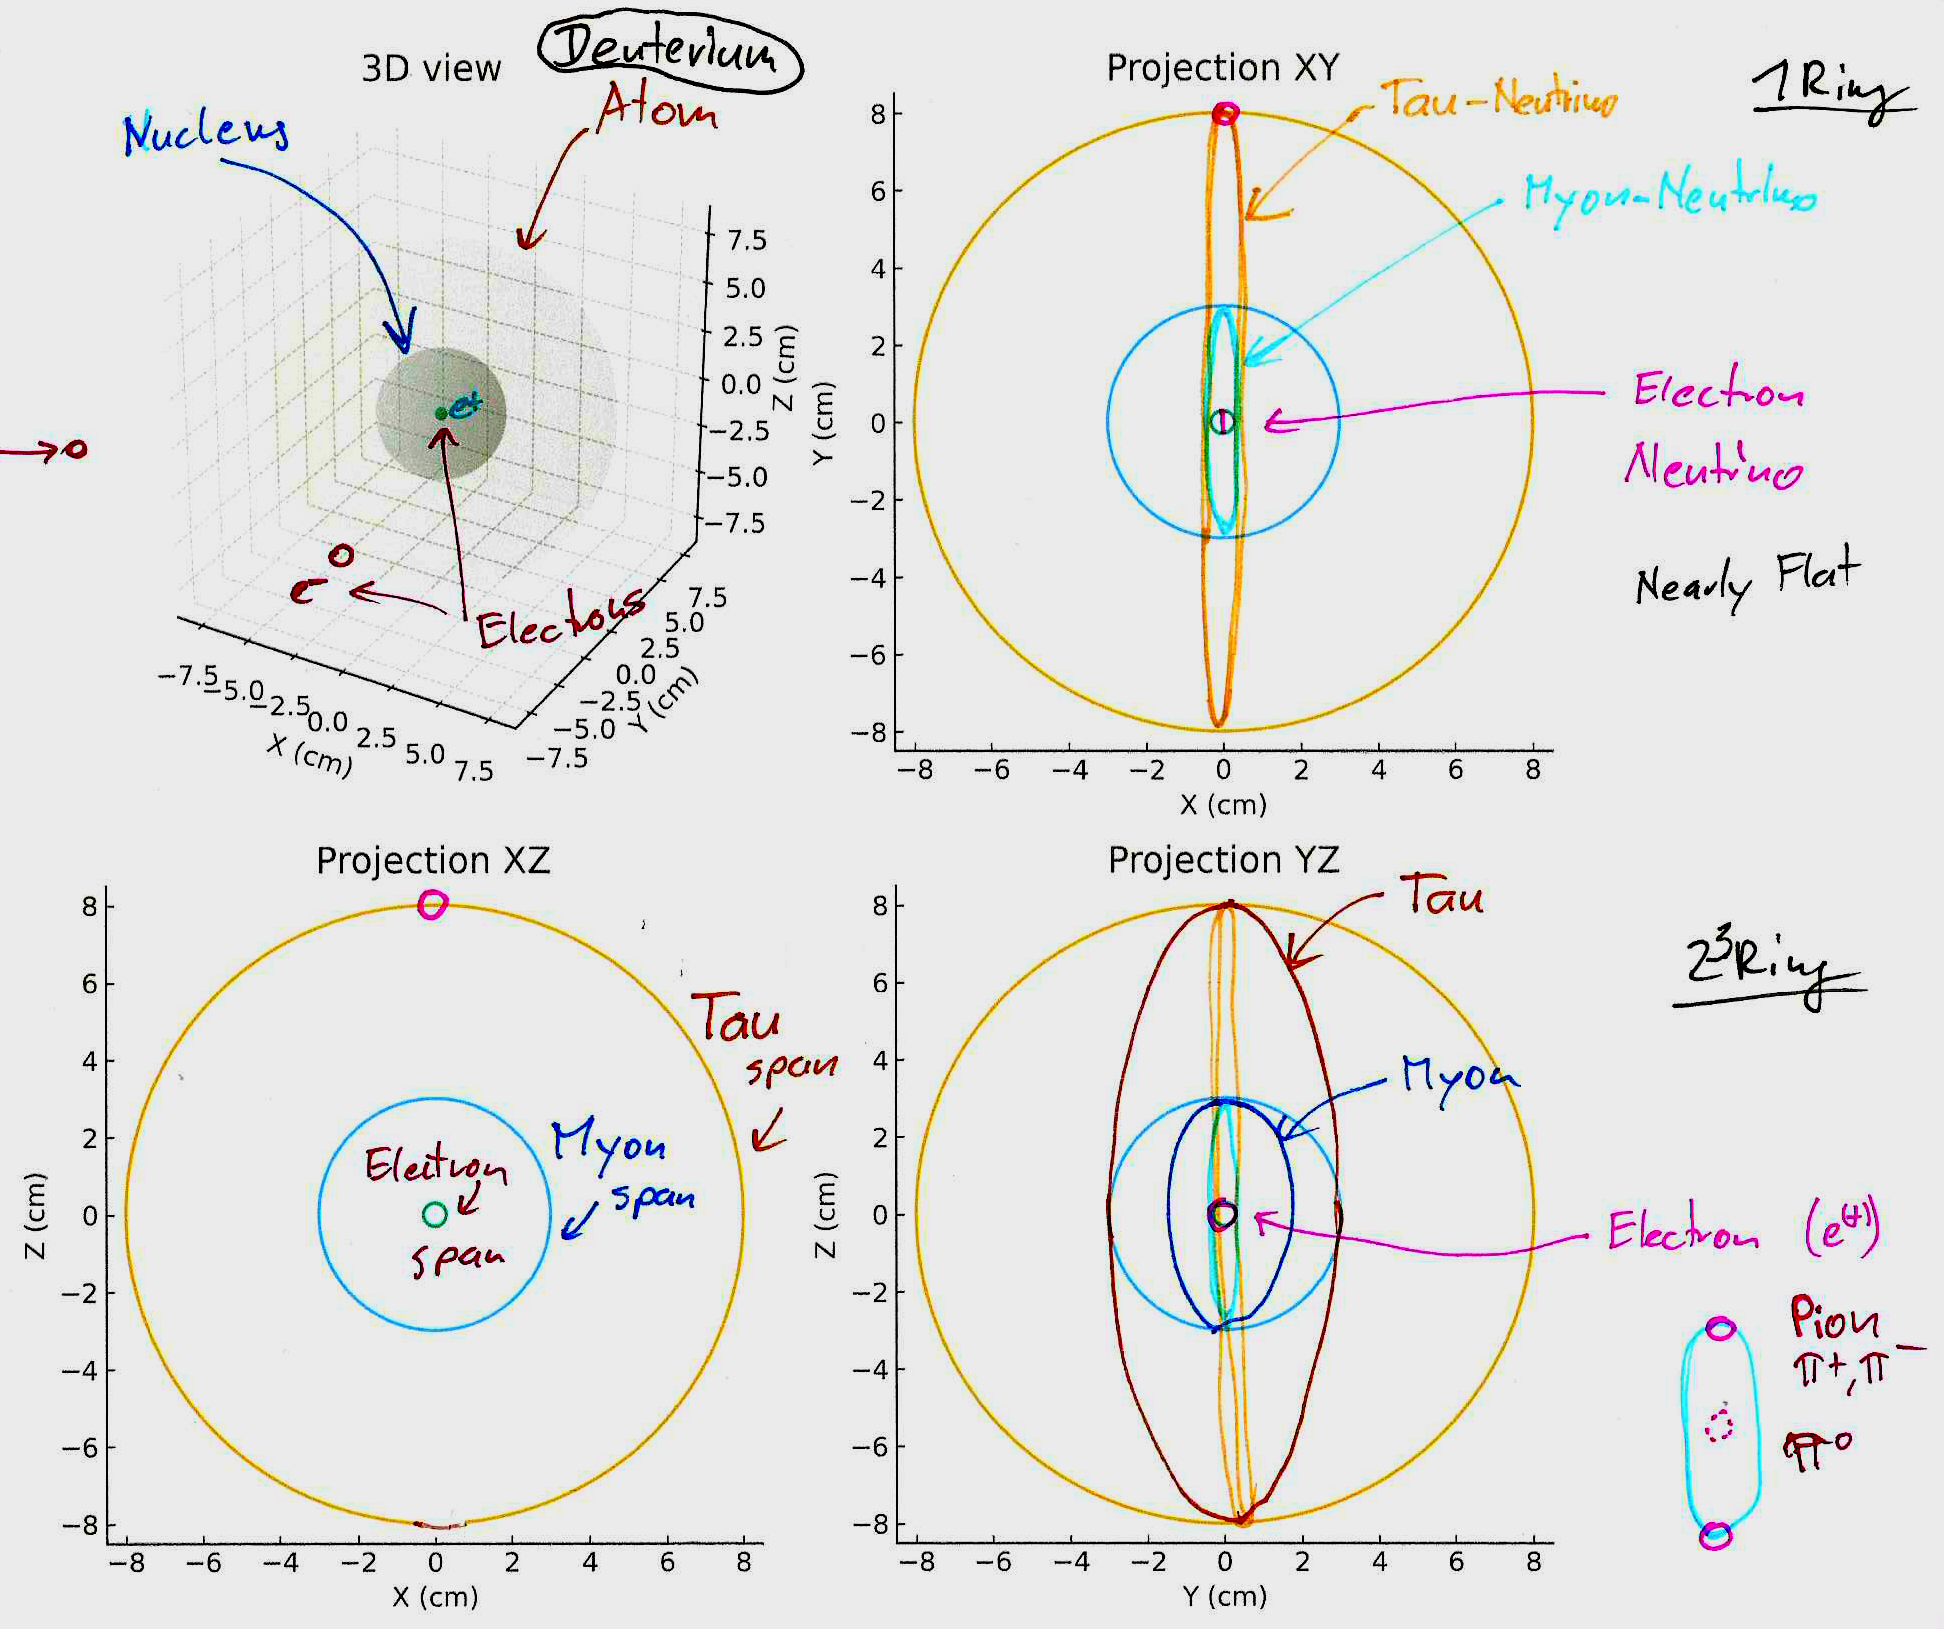 3D view
Deuterium
Atom
Nucleus
e+
7.5
5.0
2.5
0.0
−2.5
−5.0
−7.5
Z (cm)
e−
Electrons
7.5
5.0
2.5
0.0
−2.5
−5.0
−7.5
Y (cm)
−7.5
−5.0
−2.5
0.0
2.5
5.0
7.5
X (cm)
Projection XY
1 Ring
Tau-Neutrino
Myon-Neutrino
Electron
Neutrino
Nearly Flat
8
6
4
2
0
−2
−4
−6
−8
Y (cm)
−8 −6 −4 −2 0 2 4 6 8
X (cm)
Projection XZ
8
6
4
2
0
−2
−4
−6
−8
Z (cm)
Tau
span
Myon
span
Electron
span
−8 −6 −4 −2 0 2 4 6 8
X (cm)
Projection YZ
Tau
2³Ring
Myon
Electron (e(+))
Pion
π+, π−
π0
8
6
4
2
0
−2
−4
−6
−8
Z (cm)
−8 −6 −4 −2 0 2 4 6 8
Y (cm)